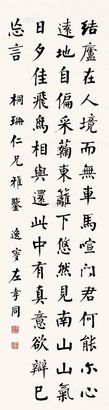 結廬在人境而無車馬喧問君何能尔心
遠地自偏采菊東籬下悠然見南山山氣
日夕佳飛鳥相與還此中有真意欲辯已
忘言
桐珊仁兄雅鑒
左孝同